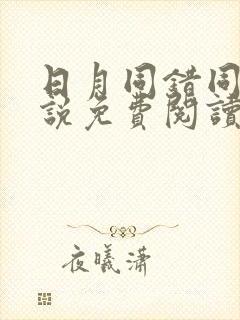 日月同錯同
說免費閱讀
夜曦瀟